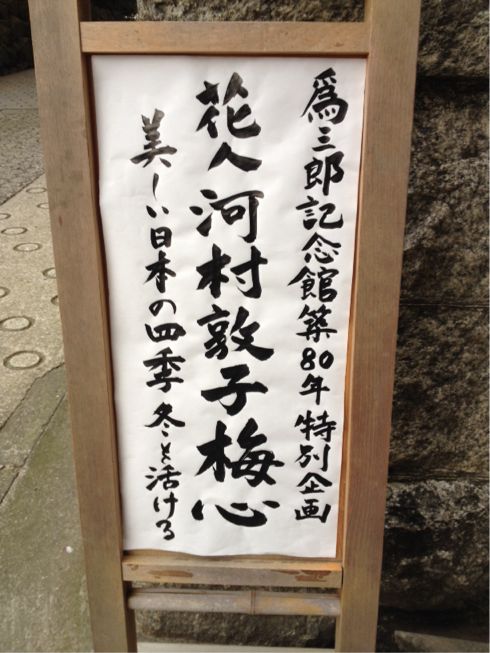 爲三郎記念館築80年 特別企画
花人 河村敦子梅心
美しい日本の四季 冬を活ける